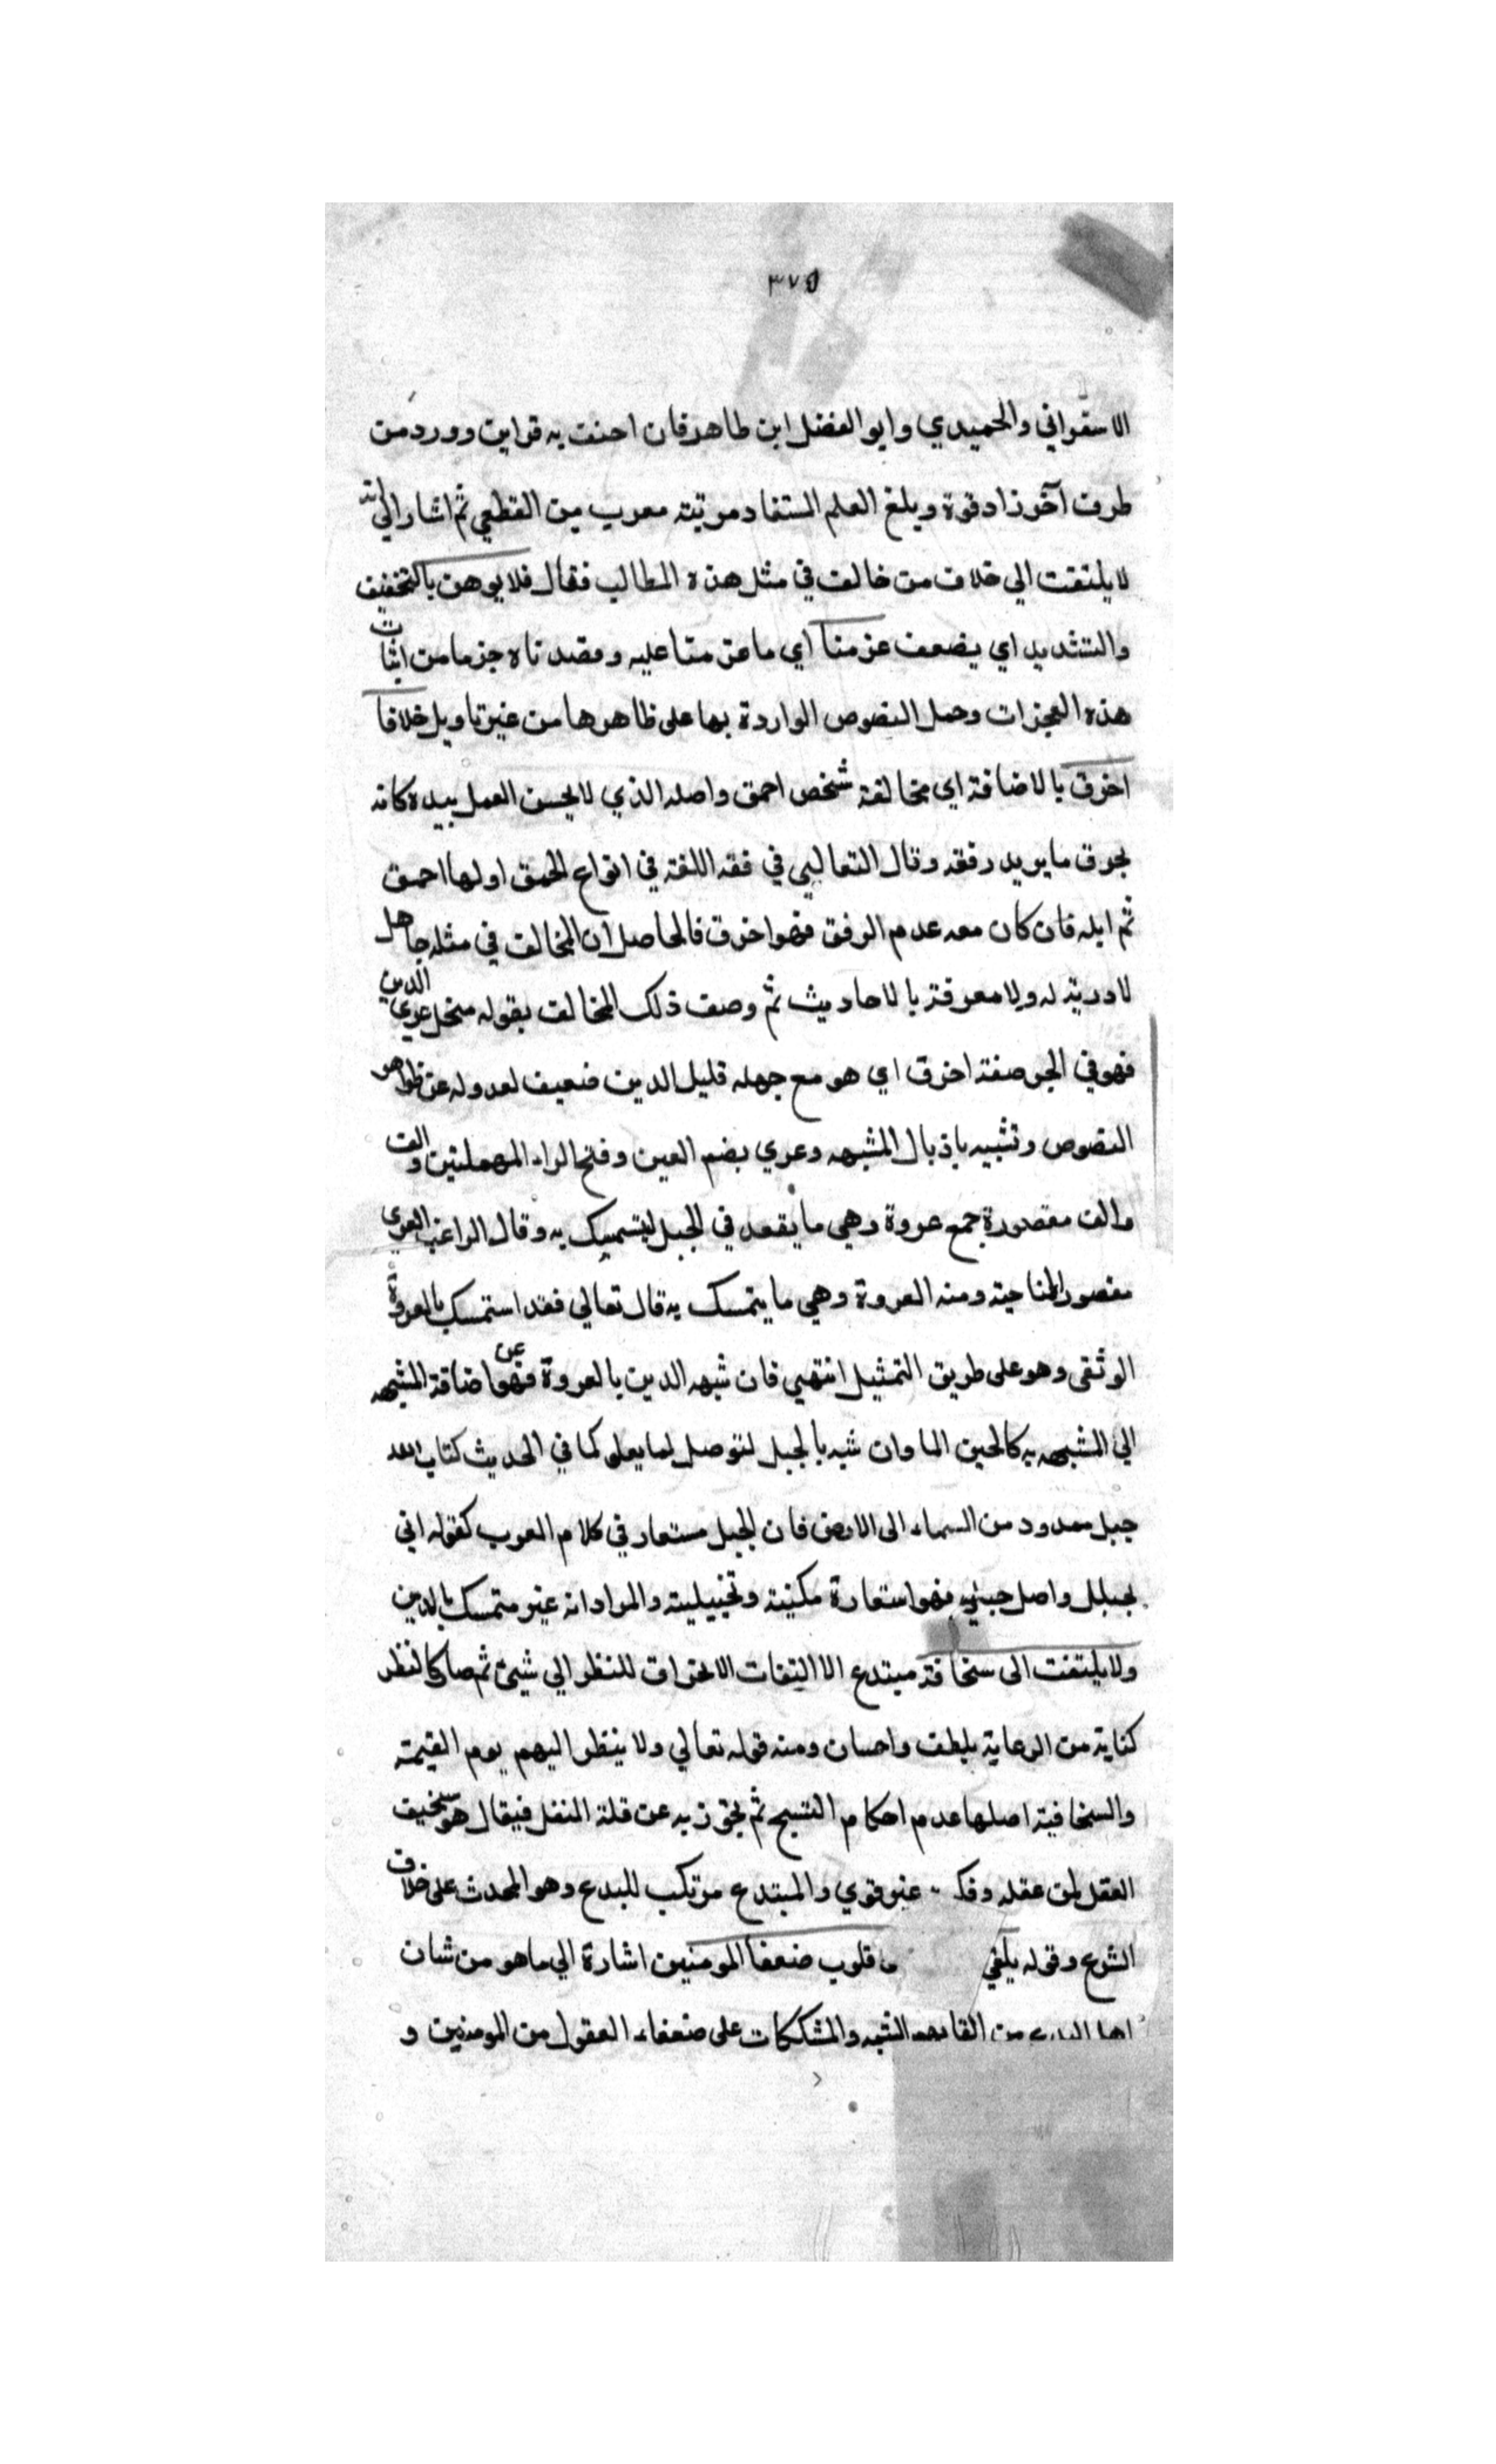 ٣٧٥
الاسفراني والحميدي وابو الفضل ابن طاهر فان احنفت به قراين وورد من
طرف آخر زاد قوة وبلغ العلم المستفاد مرتبته معرب من القطعي ثم اشار الي انه
لا يلتفت الي خلاف من خالف في مثل هذه المطالب فقال فلا يوهن بالتخفيف
والتشديد اي يضعف عزمنا اي ما عزمنا عليه وقصدناه جزما من اثبات
هذه المعجزات وحمل النصوص الواردة بها على ظاهرها من غير تاويل خلافا
اخرق بالاضافة اي مخالفة شخص احمق واصله الذي لا يحسن العمل بيده كانه
يخرق ما يريد رفقه وقال الثعالبي في فقه اللغة في انواع الحمق اولها احمق
ثم ابله فان كان معه عدم الرفق فهو اخرق فالحاصل ان المخالف في مثله جاهل
لا درية له ولا معرفة بالاحاديث ثم وصف ذلك المخالف بقوله منحل عري الدين
فهو في الجر صفة اخرق اي هو مع جهله قليل الدين ضعيف لعدوله عن ظواهر
النصوص وتشبيه باذيال المشبهه وعري بضم العين وفتح الراء المهملتين والف
والف مقصورة جمع عروة وهي ما يقعد في الحبل ليتسميك به وقال الراغب العري
مقصور الناحية ومنه العروة وهي ما يتمسك به قال تعالي فقد استمسك بالعروة
الوثقى وهو على طريق التمثيل انتهي فان شبه الدين بالعروة فهو عن اضافة المشبهه
الي المشبهه به كالجين الما وان شبه بالحبل لتوصل لما يعلو كما في الحديث كتاب الله
حبل ممدود من السماء الى الارض فان الحبل مستعار في كلام العرب كقوله اني
بحبلك واصل حبلي فهو استعارة مكنية وتخييلية والمراد انه غير متمسك بالدين
ولا يلتفت الى سخافة مبتدع الا التفات الانحراف للنظر الي شيئ ثم صار كالنظر
كناية من الرعاية بلطف واحسان ومنه قوله تعالي ولا ينظر اليهم يوم القيمة
والسخافية اصلها عدم احكام النسج ثم تجوز به عن قلة العقل فيقال هو سخيف
العقل لمن عقله وفكـ غير قوي والمبتدع مرتكب للبدع وهو المحدث على خلاف
الشرع وقوله يلقي قلوب ضعفا المومنين اشارة الي ما هو من شان
من القايهم الشبه والمشككات على ضعفاء العقول من المومنين و